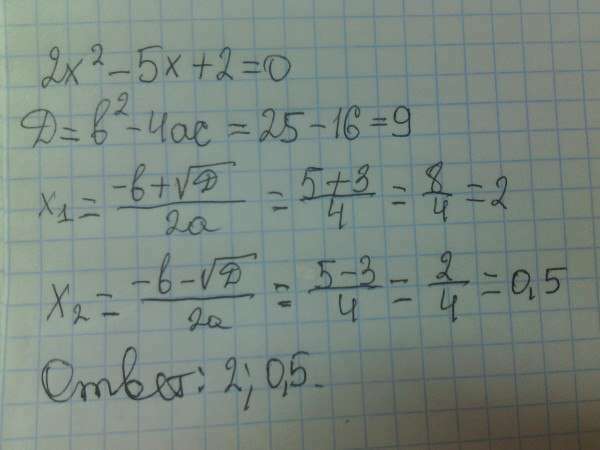 2x² - 5x + 2 = 0
D = b² - 4ac = 25 - 16 = 9
x₁ = (-b + √D)/2a = (5 + 3)/4 = 8/4 = 2
x₂ = (-b - √D)/2a = (5 - 3)/4 = 2/4 = 0,5
Ответ: 2; 0,5.